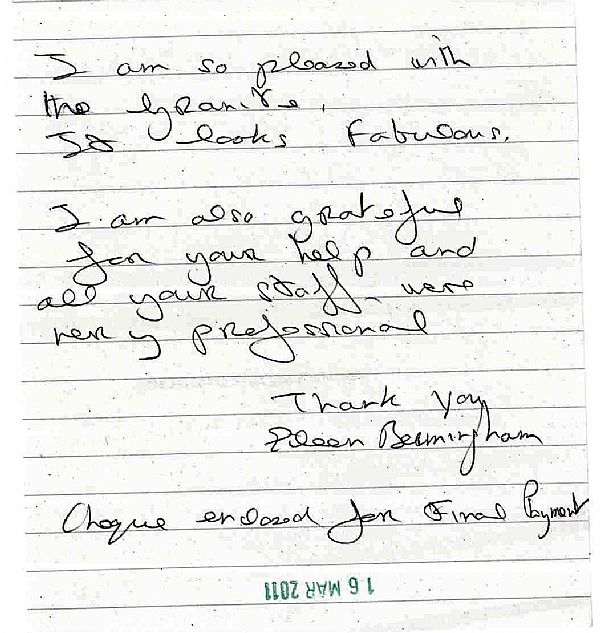 I am so pleased with
the granite.
It looks Fabulous.
I am also grateful
for your help and
all your staff were
very professional
Thank you
Eileen Bermingham
Cheque enclosed for Final Payment
16 MAR 2011